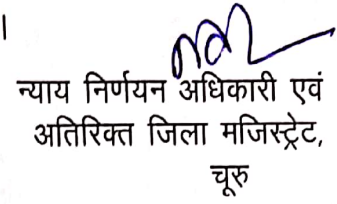 ।
न्याय निर्णयन अधिकारी एवं
अतिरिक्त जिला मजिस्ट्रेट,
चूरु